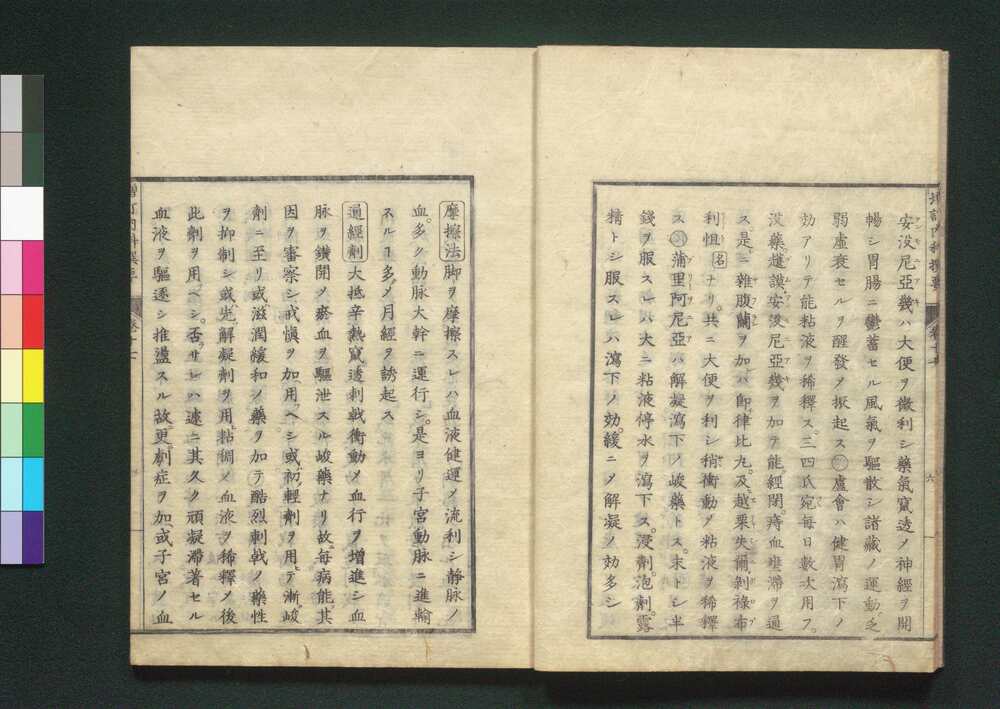 安没尼亞幾ハ大便ヲ微利シ藥氣竄透ノ神經ヲ開
暢シ胃腸ニ鬱蓄セル風氣ヲ驅散シ諸藏ノ運動乏
弱虚衰セルヲ醒發ノ振起ス盧會ハ健胃瀉下ノ
効アリテ能粘液ヲ稀釋ス三四氏宛毎日數次用フ
没藥越謨安没尼亞幾ヲ加テ能經閉痔血壅滯ヲ通
ス是ニ雜腹蘭ヲ加ハ即律比丸及越栗失爾剝祿布
利怛名ナリ共ニ大便ヲ利シ稍衝動ノ粘液ヲ稀釋
ス蒲里阿尼亞ハ解凝瀉下ノ峻藥トス末トシ半
錢ヲ服スレハ大ニ粘液停水ヲ瀉下ス浸劑泡劑露
精トシ服スレハ瀉下ノ効緩ニノ解凝ノ効多シ
六
摩擦法脚ヲ摩擦スレハ血液健運ノ流利シ靜脉ノ
血多ク動脉大幹ニ運行シ是ヨリ子宮動脉ニ進輸
スルヿ多ノ月經ヲ誘起ス
通經劑大抵辛熱竄透刺戟衝動ノ血行ヲ增進シ血
脉ヲ鑚開ノ瘀血ヲ驅泄スル峻藥ナリ故毎病能其
因ヲ審察シ戒愼ヲ加用ヘシ或初輕劑ヲ用テ漸峻
劑ニ至リ或滋潤緩和ノ藥ヲ加テ酷烈刺戟ノ藥性
ヲ抑制シ或先解凝劑ヲ用粘稠ノ血液ヲ稀釋ノ後
此劑ヲ用ヘシ否サレハ遽ニ其久ク頑凝滯著セル
血液ヲ驅逐シ推盪スル故更劇症ヲ加或子宮ノ血